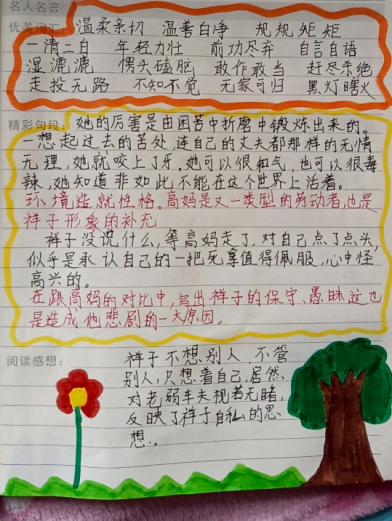 名人名言
优美词汇：温柔亲切 温善白净 规规矩矩
一清二白 年轻力壮 前功尽弃 自言自语
湿漉漉 愣头磕脑 敢作敢当 赶尽杀绝
走投无路 不知不觉 无家可归 黑灯瞎火
精彩句段：她的厉害是由困苦中折磨中锻炼出来的。
一想起过去的苦处，连自己的丈夫都那样的无情
无理，她就咬上了牙。她可以很和气，也可以很毒
辣，她知道非如此不能在这个世界上活着。
环境造就性格。高妈是又一类型的劳动者，也是
祥子形象的补充
祥子没说什么，等高妈走了，对自己点了点头，
似乎是承认自己的一把死拿值得佩服，心中怪
高兴的。
在跟高妈的对比中，写出祥子的保守、愚昧这也
是造成他悲剧的一大原因。
阅读感想：
祥子不想别人，不管
别人，只想着自己，居然
对老弱车夫视若无睹，
反映了祥子自私的思
想。